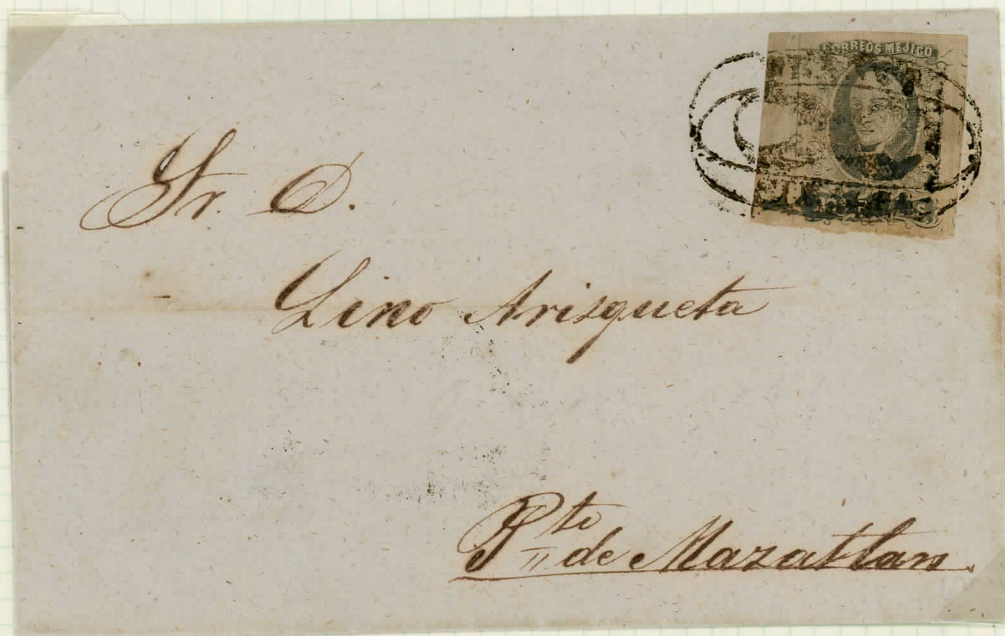 CORREOS MEJICO
Sr. D.
Lino Arisqueta
Pto de Mazatlan.